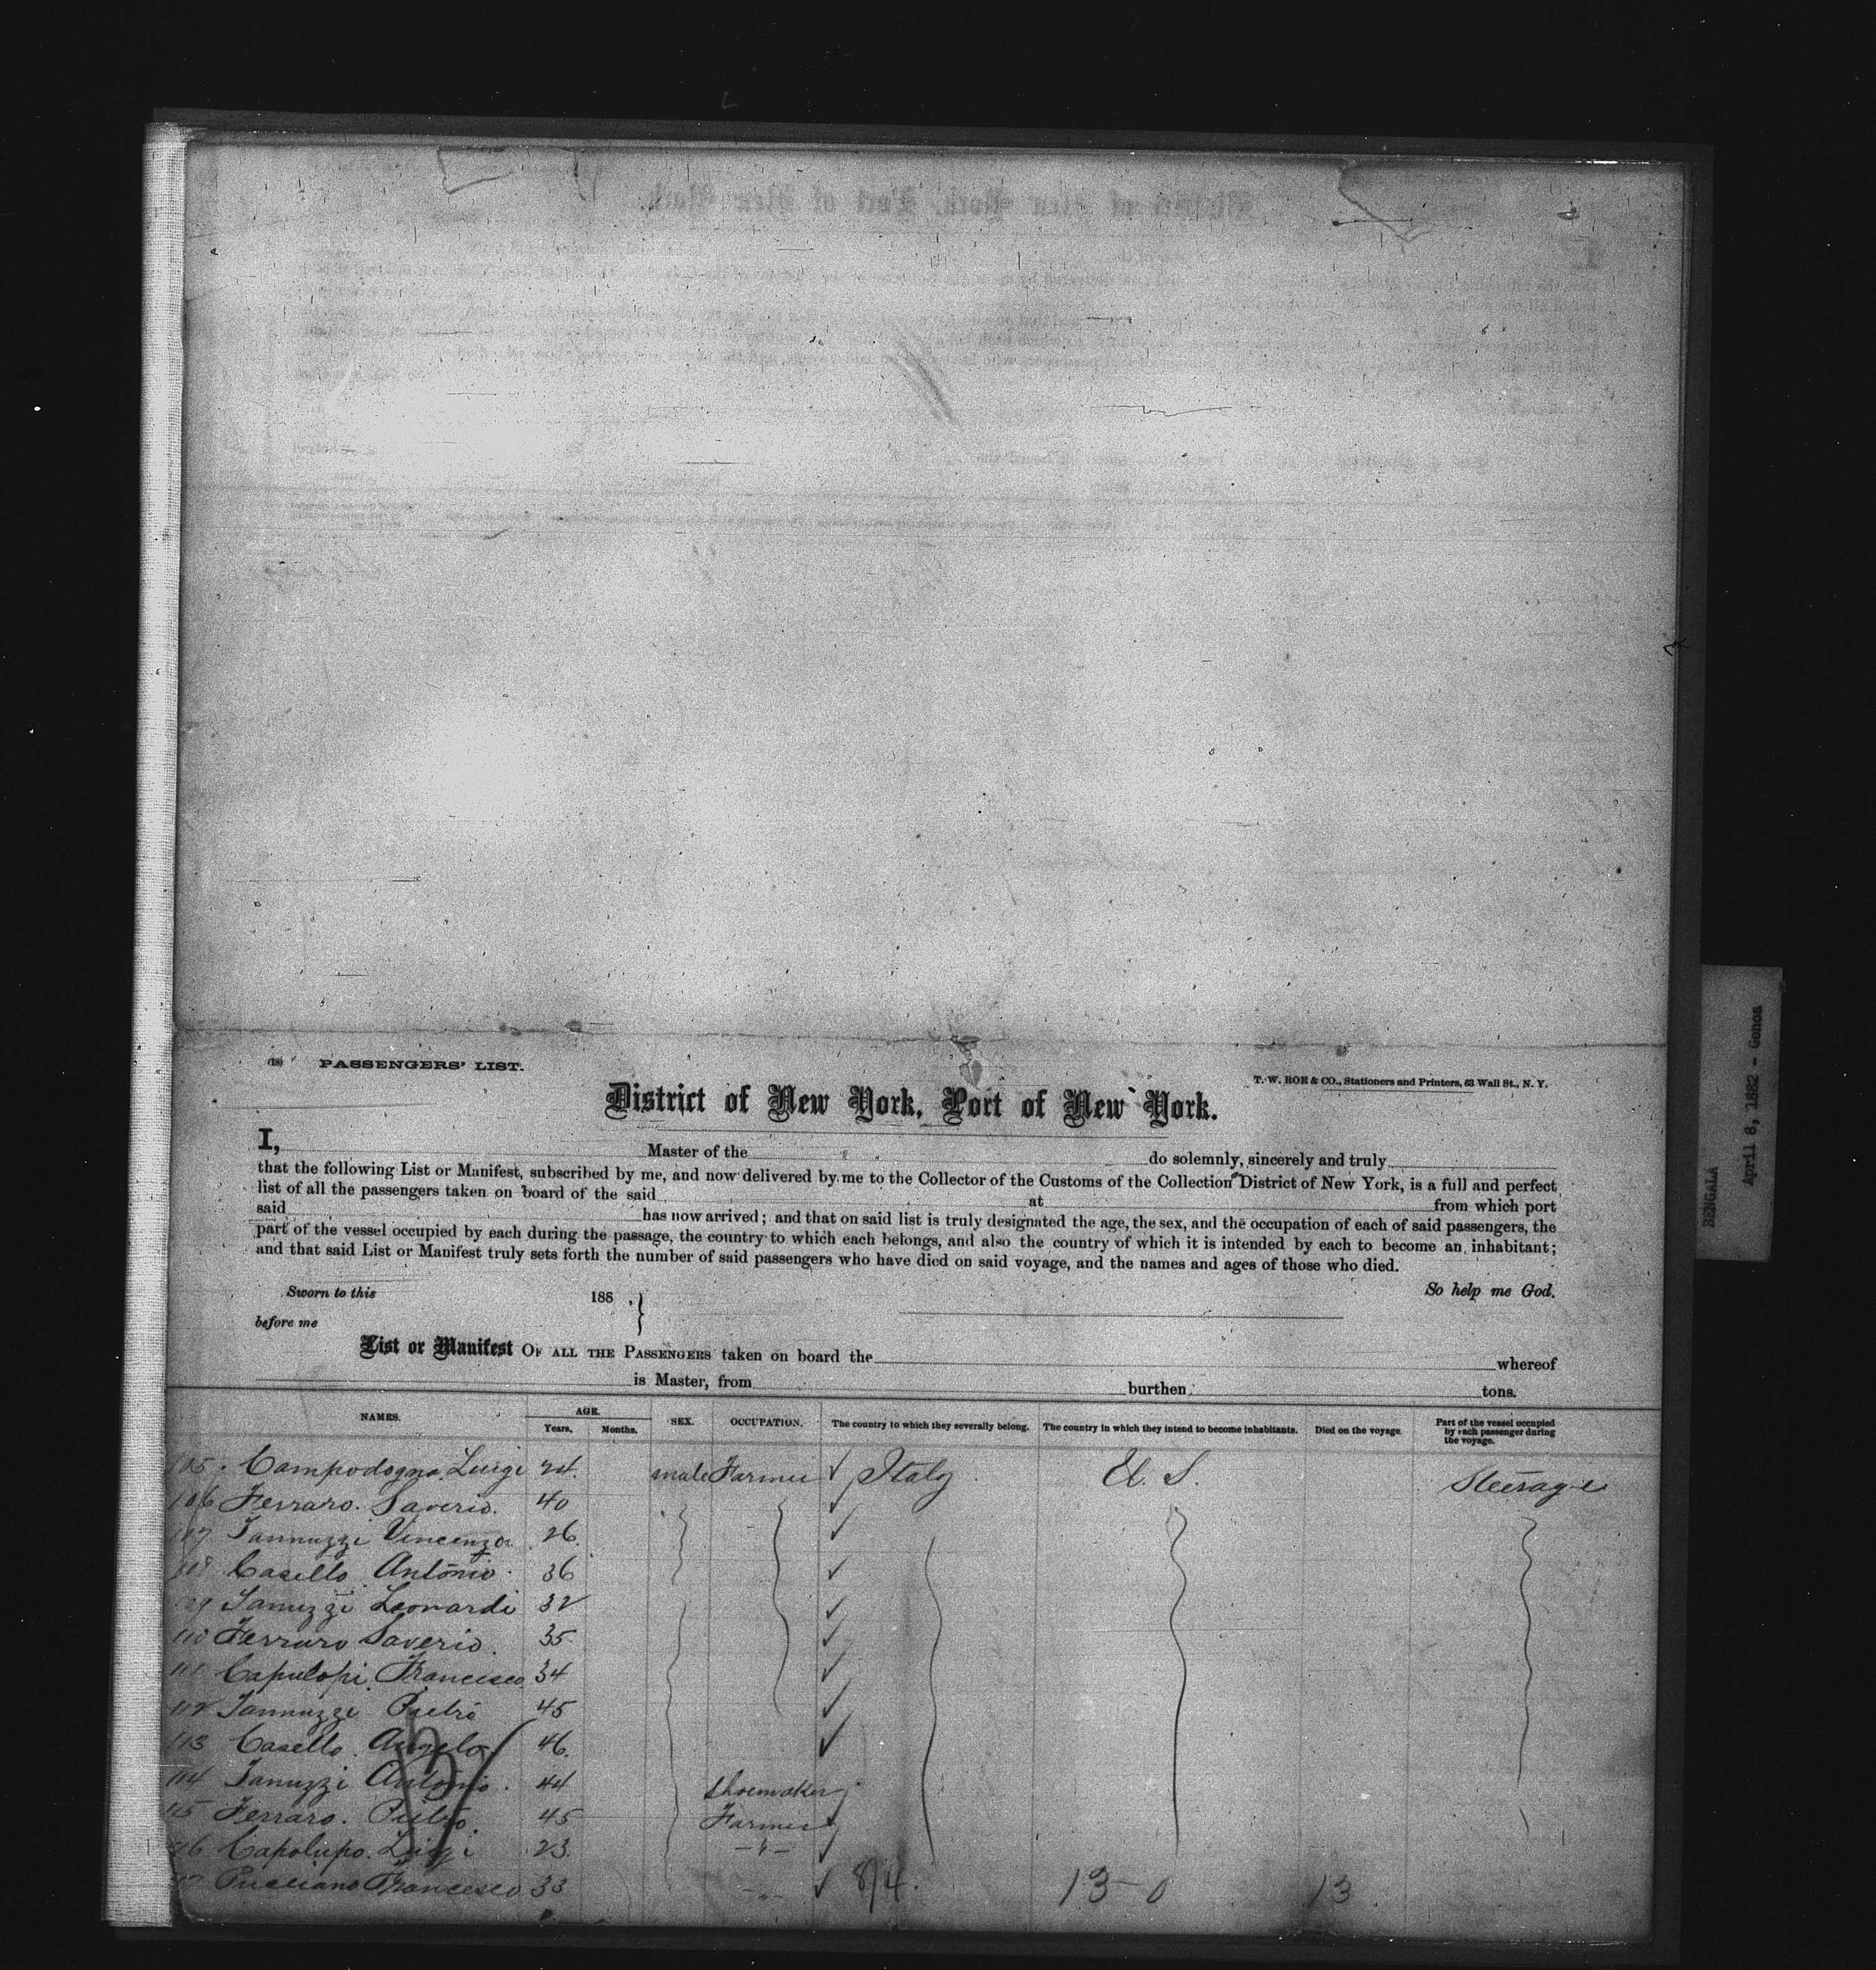 (18) PASSENGERS' LIST.
T. W. ROE & CO., Stationers and Printers, 63 Wall St., N. Y.
District of New York, Port of New York.
I, Master of the do solemnly, sincerely and truly
that the following List or Manifest, subscribed by me, and now delivered by me to the Collector of the Customs of the Collection District of New York, is a full and perfect
list of all the passengers taken on board of the said at from which port
said has now arrived; and that on said list is truly designated the age, the sex, and the occupation of each of said passengers, the
part of the vessel occupied by each during the passage, the country to which each belongs, and also the country of which it is intended by each to become an inhabitant;
and that said List or Manifest truly sets forth the number of said passengers who have died on said voyage, and the names and ages of those who died.
Sworn to this 188 . } So help me God.
before me
List or Manifest OF ALL THE PASSENGERS taken on board the whereof
is Master, from burthen tons.
NAMES. AGE. Years. Months. SEX. OCCUPATION. The country to which they severally belong. The country in which they intend to become inhabitants. Died on the voyage Part of the vessel occupied by each passenger during the voyage.
105 Campodogna Luigi 24 male Farmer ✓ Italy U. S. Steerage
106 Ferraro Saverio. 40 ✓
107 Iannuzzi Vincenzo 26 ✓
108 Casello Antonio 36 ✓
109 Ianuzzi Leonardi 32 ✓
110 Ferraro Saverio. 35 ✓
111 Capulopi Francesco 34 ✓
112 Iannuzzi Pietro 45 ✓
113 Casello Angelo 46 ✓
114 Ianuzzi Antonio. 44 Shoemaker
115 Ferraro. Pietro. 45 Farmer
116 Capolupo. Luigi 23 -"-
Francesco 33 -"- ✓ 8/4. 13-0 13
BENGALA
April 8, 1882 - Genoa